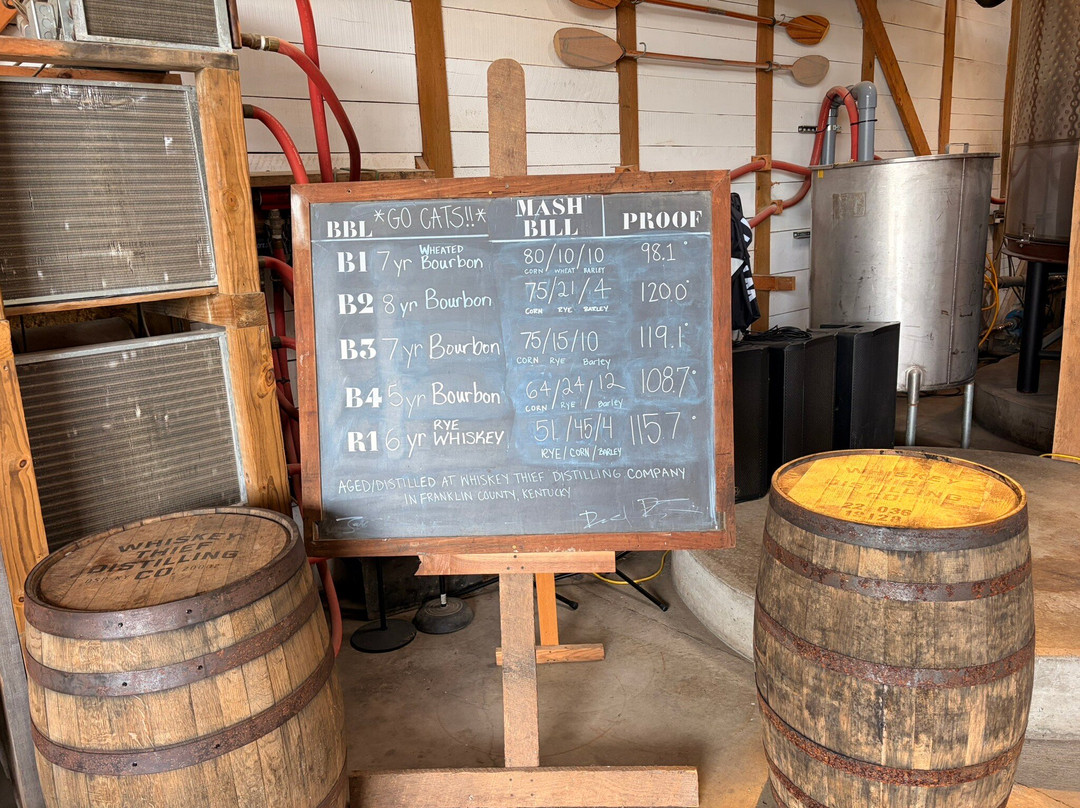 BBL *GO CATS!!* MASH BILL PROOF
B1 7 yr WHEATED Bourbon 80/10/10 98.1°
CORN WHEAT BARLEY
B2 8 yr Bourbon 75/21/4 120.0°
CORN RYE BARLEY
B3 7 yr Bourbon 75/15/10 119.1°
CORN RYE Barley
B4 5 yr Bourbon 64/24/12 108.7°
CORN RYE Barley
R1 6 yr RYE WHISKEY 51/45/4 115.7°
RYE/CORN/BARLEY
AGED/DISTILLED AT WHISKEY THIEF DISTILLING COMPANY
IN FRANKLIN COUNTY, KENTUCKY
WHISKEY
THIEF
DISTILLING
CO.